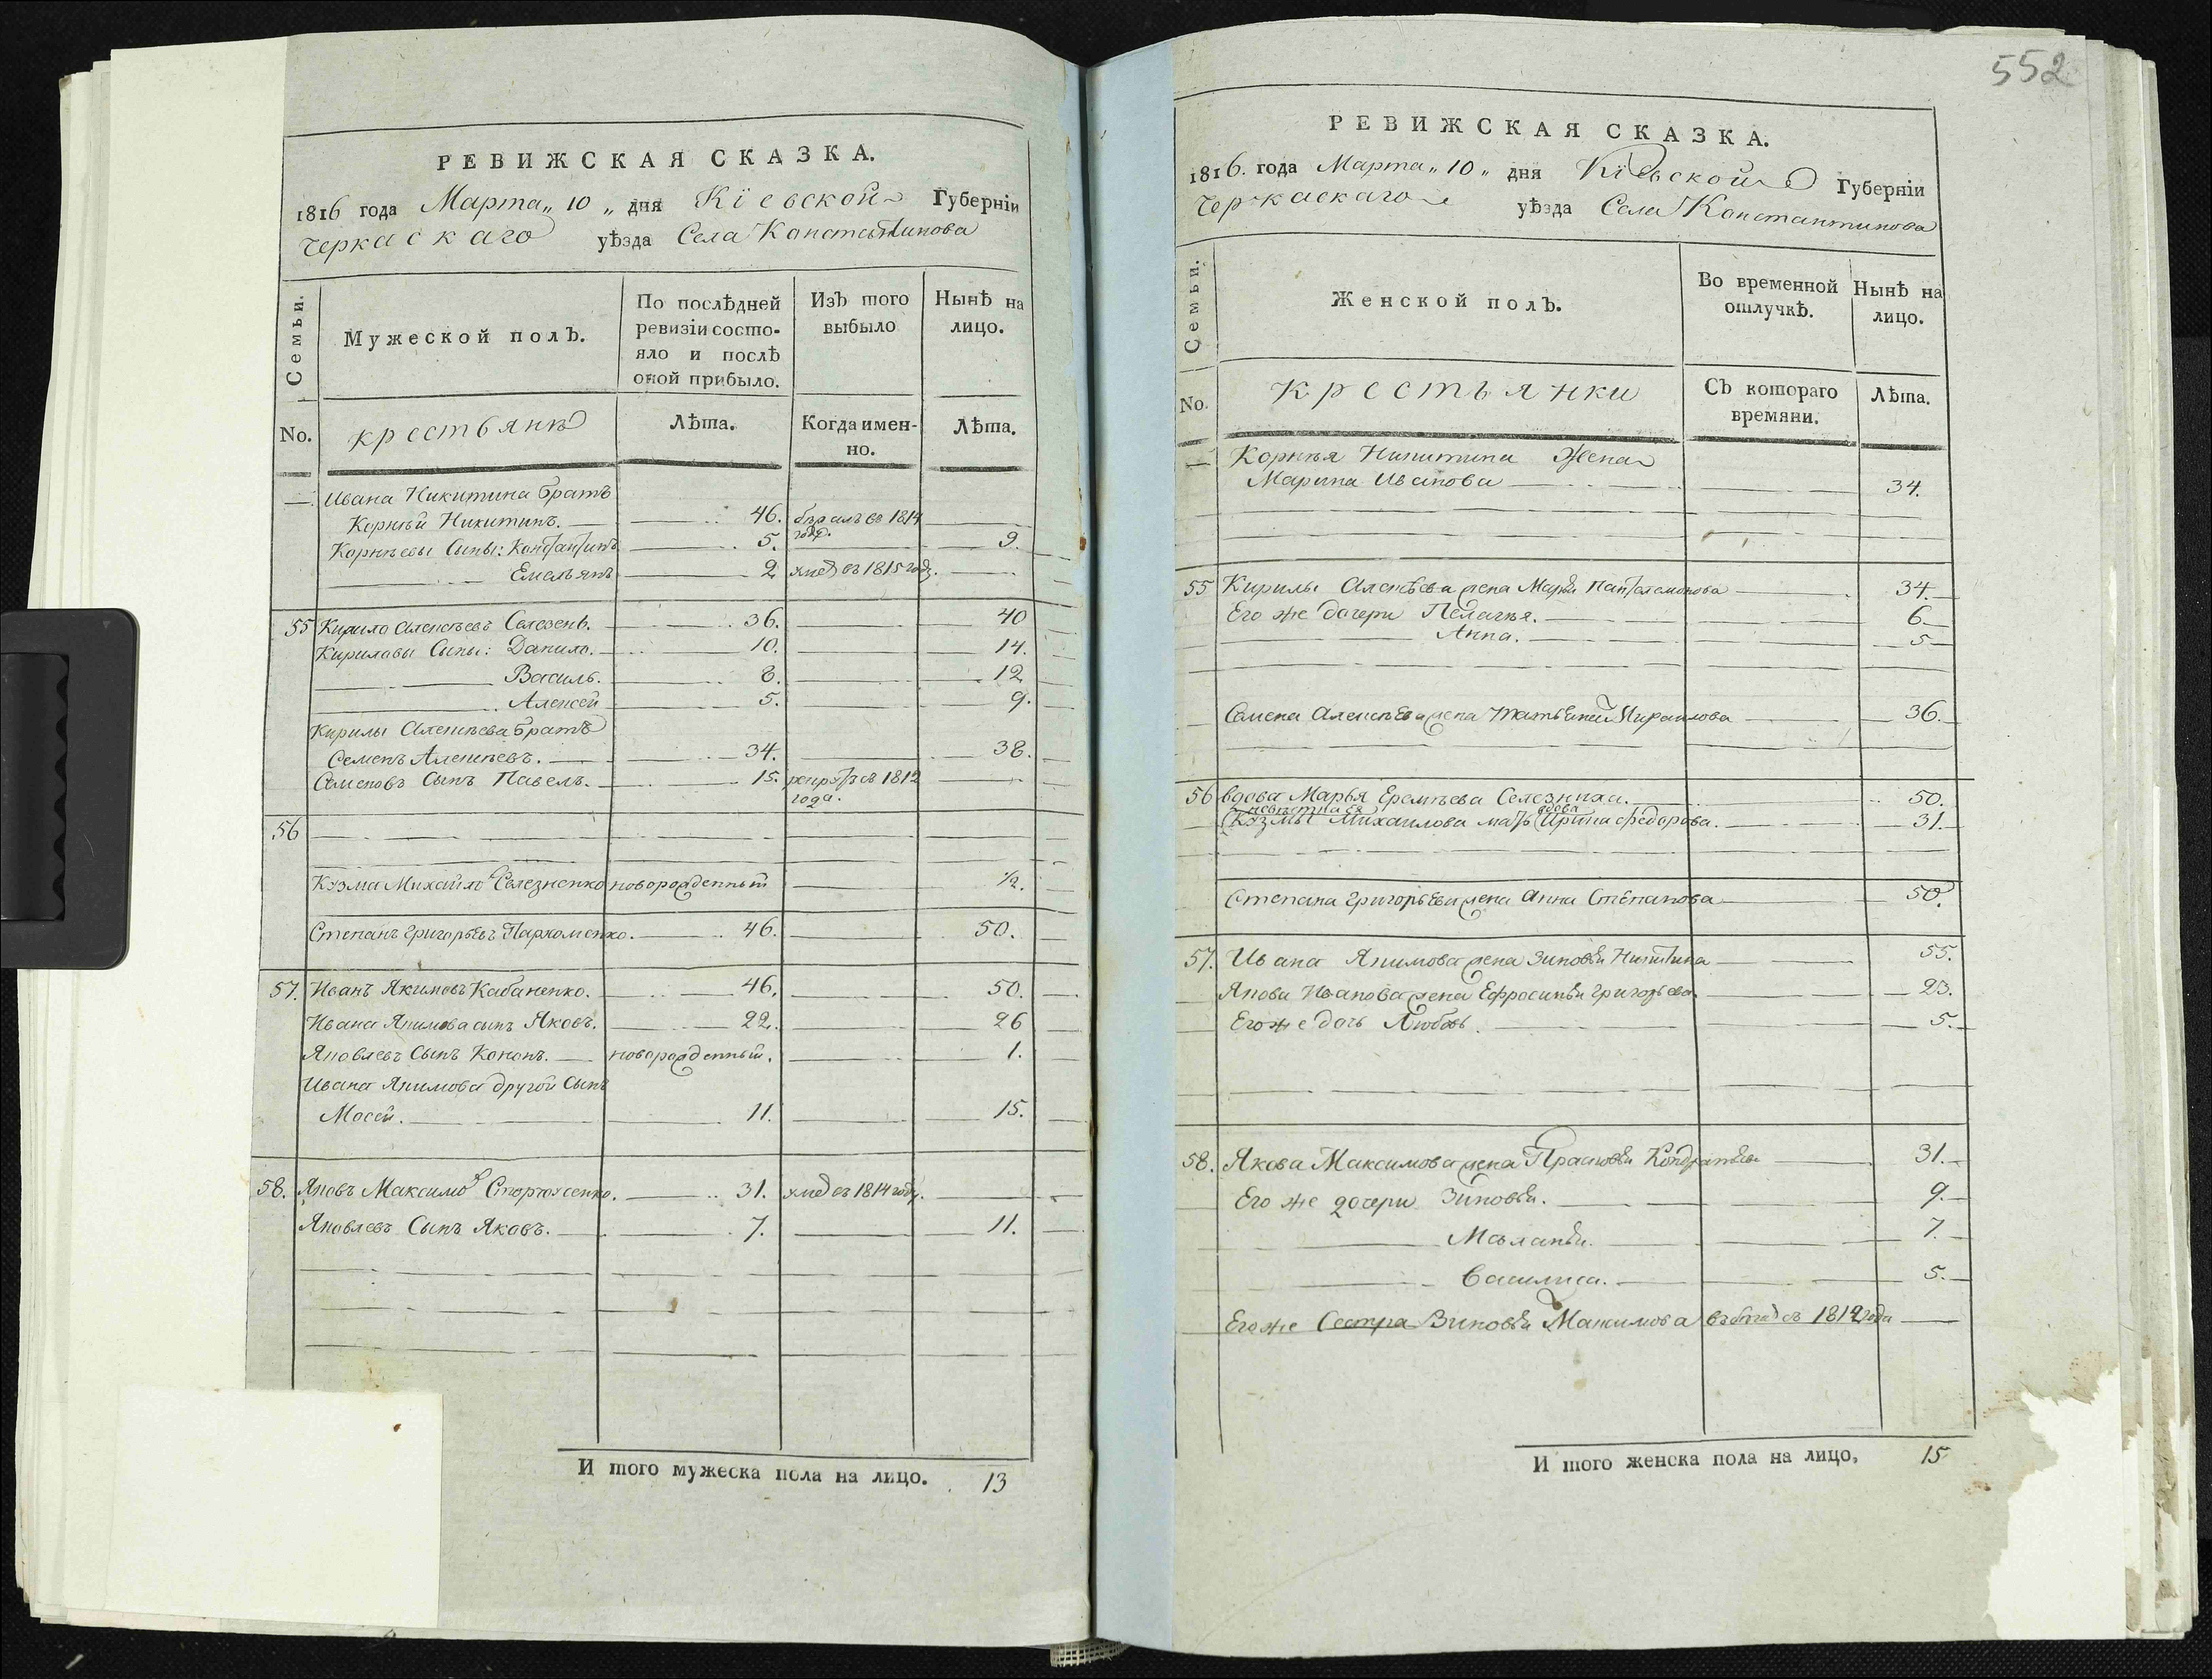 552
РЕВИЖСКАЯ СКАЗКА.
1816 года Марта „ 10 „ дня Кіевской Губерніи
Черкаскаго уѣзда Села Константинова
Семьи.
Мужеской полъ.
По послѣдней ревизіи состояло и послѣ оной прибыло.
Изъ того выбыло
Нынѣ на лицо.
No.
крестьянѣ
Лѣта.
Когда именно.
Лѣта.
Ивана Никитина братъ
Корнѣй Никитинъ. 46. 1814 году.
Корнѣевы Сыны: Константинъ 5. 9.
Емельянъ 2 умер въ 1815 году.
55 Кирило Алексѣевъ Селезень. 36. 40
Кириловы Сыны: Данило. 10. 14.
Василь. 8. 12
Алексей 5. 9.
Кирилы Алексѣева братъ
Семенъ Алексѣевъ. 34. 38.
Семеновъ Сынъ Павелъ. 15. рекрутъ съ 1812 года.
56
Кузма Михайлов Селезненко новорожденный ½.
Степанъ Григорьевъ Пархоменко. 46. 50.
57. Иванъ Якимовъ Кабаненко. 46. 50.
Ивана Якимова сынъ Яковъ. 22. 26
Яковлевъ Сынъ Кононъ. новорожденный. 1.
Ивана Якимова другой Сынъ
Мосей. 11. 15.
58. Яковъ Максимов 31. умер въ 1814 году.
Яковлевъ Сынъ Яковъ. 7. 11.
И того мужеска пола на лицо. 13
РЕВИЖСКАЯ СКАЗКА.
1816. года Марта „ 10 „ дня Кіевской Губерніи
Черкаскаго уѣзда Села Константинова
Семьи.
Женской полъ.
Во временной отлучкѣ.
Нынѣ на лицо.
No.
крестьянки
Съ котораго времяни.
Лѣта.
Корнѣя Никитина Жена
Марина Иванова 34.
55 Кирилы Алексѣева жена Марья Пантелемонова 34.
Его же дочери Пелагия. 6
Анна. 5
Семена Алексѣева жена Татьяна 36.
56 вдова Марья Еремѣева Селезниха. 50.
невѣстка ея вдова
Кузмы Михаилова мать Ирина Федорова. 31.
Степана Григорьева жена Анна Степанова 50.
57. Ивана Якимова жена Зиновья Никитина 55.
Якова Иванова жена Ефросинья Григорьева. 23.
Его же дочь Любовь. 5.
58. Якова Максимова жена Прасковья Кондратьева 31.
Его же дочери Зиновья. 9.
Маланья. 7.
Василиса. 5.
Его же Сестра Зиновья Максимова съ 1812 года
И того женска пола на лицо, 15